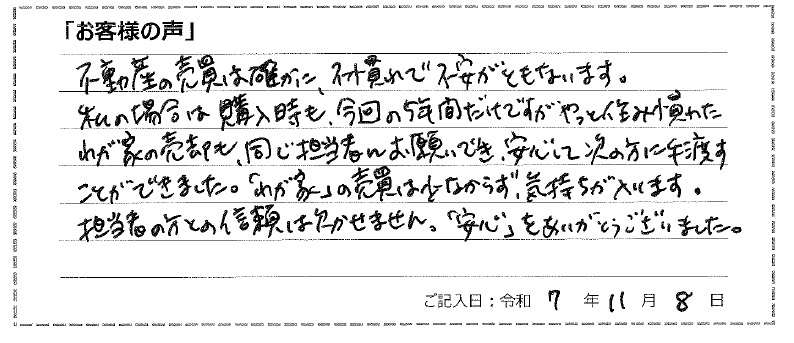 「お客様の声」
不動産の売買は確かに、不慣れで不安がともないます。
私の場合は購入時も、今回の5年間だけですがやっと住み慣れた
わが家の売却も、同じ担当者にお願いでき、安心して次の方に手渡す
ことができました。「わが家」の売買は少なからず、気持ちが入います。
担当者の方との信頼は欠かせません。「安心」をありがとうございました。
ご記入日：令和 7 年 11 月 8 日